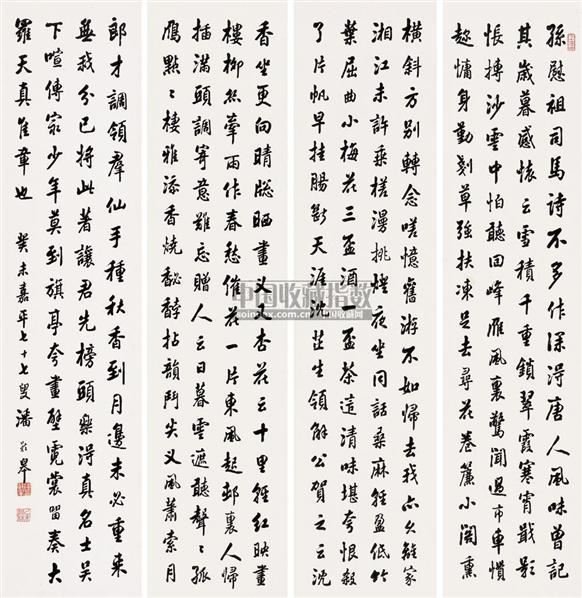 孫慰祖司馬詩不多作深得唐人風味曾記
其歲暮感懷云雪積千重鎖翠霞寒宵戢影
悵摶沙雲中怕聽回峰雁風裏驚聞過市車慣
趂慵身勤剗草強扶凍足去尋花卷簾小閣熏
橫斜方別轉念嗟憶舊游不如歸去我亦久離家
湘江未許乘槎漫挑燈夜坐同話桑麻羅盈低竹
葉屈曲小梅花三盃酒一盃茶這清味堪夸恨殺
了片帆早挂腸斷天涯沈芷生領解公賀之云沈
香坐更向晴牎晒畫叉又杏花云十里輕紅映畫
樓柳絲牽雨作春愁催花一片東風起邨裏人歸
插滿頭調寄意難忘贈人云日暮雲遮聽聲〻孤
鴈點〻棲雅添香燒秘馞拈韻鬥尖叉風蕭索月
郎才調領羣仙手種秋香到月邊未必重來
無我分已將此著讓君先榜頭樂得真名士吴
下喧傳家少年莫到旗亭夸畫壁霓裳留奏大
羅天真隹章也 癸未嘉平七十七叟潘齡皋
中国收藏指数